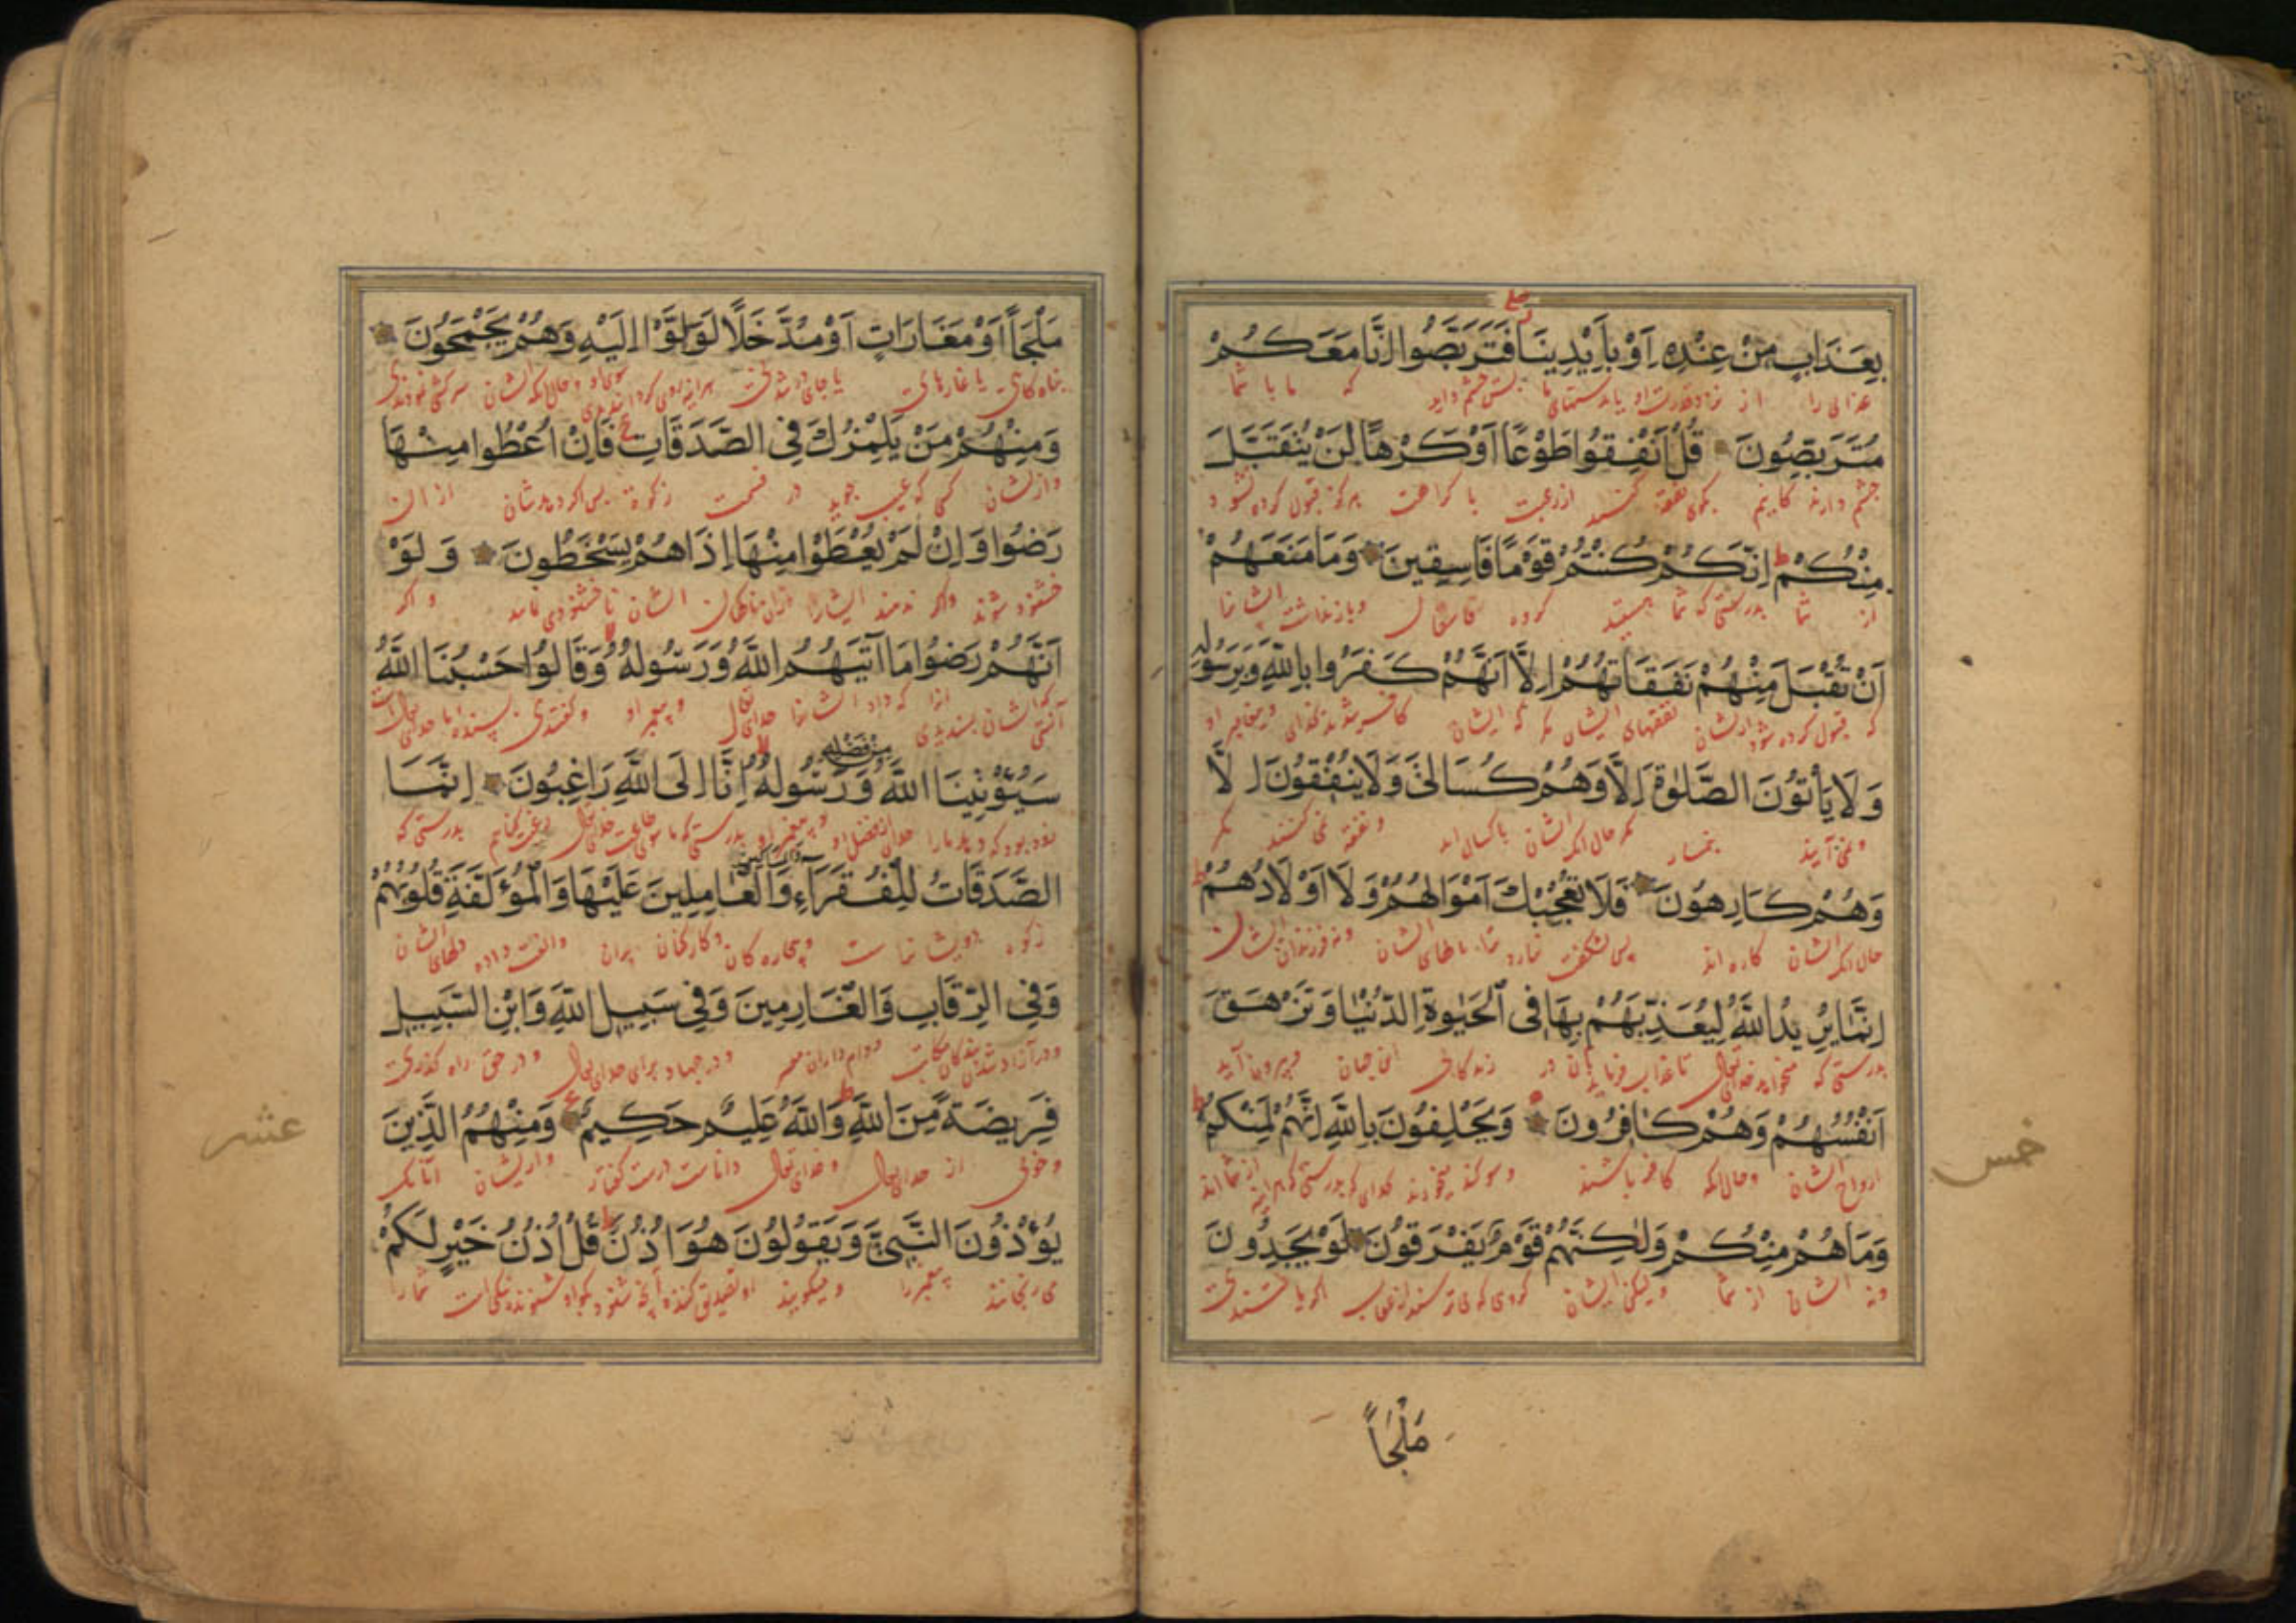 بِعَذَابٍ مِنْ عِنْدِهِ اَوْ بِاَيْدِينَا فَتَرَبَّصُوا اِنَّا مَعَكُمْ
عذابی را از نزد قدرت او یا بدستهای ما پس چشم دارید که ما با شما
مُتَرَبِّصُونَ قُلْ اَنْفِقُوا طَوْعًا اَوْ كَرْهًا لَنْ يُتَقَبَّلَ
چشم دارندکانیم بکوی نفقه کنید از رغبت یا کراهت هرکز قبول کرده نشود
مِنْكُمْ اِنَّكُمْ كُنْتُمْ قَوْمًا فَاسِقِينَ وَمَا مَنَعَهُمْ
از شما بدرستی که شما هستید کروه فاسقان وبازنداشت ایشانرا
اَنْ تُقْبَلَ مِنْهُمْ نَفَقَاتُهُمْ اِلَّا اَنَّهُمْ كَفَرُوا بِاللّٰهِ وَبِرَسُولِهِ
که قبول کرده شود از ایشان نفقهای ایشان مکر که ایشان کافر شدند بخدای و
وَلَا يَأْتُونَ الصَّلٰوةَ اِلَّا وَهُمْ كُسَالٰى وَلَا يُنْفِقُونَ اِلَّا
ونمی آیند بنماز مکر حال آنکه ایشان باکسالی اند ونفقه نمی کنند مکر
وَهُمْ كَارِهُونَ فَلَا تُعْجِبْكَ اَمْوَالُهُمْ وَلَا اَوْلَادُهُمْ
حال آنکه ایشان کاره اند پس بشکفت نیارد ترا مالهای ایشان ونه فرزندان ایشان
اِنَّمَا يُرِيدُ اللّٰهُ لِيُعَذِّبَهُمْ بِهَا فِى الْحَيٰوةِ الدُّنْيَا وَتَزْهَقَ
بدرستی که میخواهد خدای تعالی تا عذاب فرماید بآن در زندکانی این جهان وبیرون آید
اَنْفُسُهُمْ وَهُمْ كَافِرُونَ وَيَحْلِفُونَ بِاللّٰهِ اِنَّهُمْ لَمِنْكُمْ
ارواح ایشان وحال آنکه کافر باشند وسوکند میخورند بخدای که بدرستی که هراینه از شما اند
وَمَا هُمْ مِنْكُمْ وَلٰكِنَّهُمْ قَوْمٌ يَفْرَقُونَ لَوْ يَجِدُونَ
ونه ایشان از شما ولیکن ایشان کروهی که می ترسند اکر یافتندی
خمس
مَلْجَأً
مَلْجَأً اَوْ مَغَارَاتٍ اَوْ مُدَّخَلًا لَوَلَّوْا اِلَيْهِ وَهُمْ يَجْمَحُونَ
پناه کاهی یا غارهای یا جای هراینه روی کردانیدندی سوی او وحال آنکه ایشان سرکشی نمودندی
وَمِنْهُمْ مَنْ يَلْمِزُكَ فِى الصَّدَقَاتِ فَاِنْ اُعْطُوا مِنْهَا
واز ایشان کسی که عیب جوید در قسمت زکوة پس اکر دهند شان از آن
رَضُوا وَاِنْ لَمْ يُعْطَوْا مِنْهَا اِذَا هُمْ يَسْخَطُونَ وَلَوْ
خشنود شوند واکر ندهند ایشانرا از آن ایشان واکر
اَنَّهُمْ رَضُوا مَا آتٰيهُمُ اللّٰهُ وَرَسُولُهُ وَقَالُوا حَسْبُنَا اللّٰهُ
که ایشان بسندیدی آنرا که داد ایشانرا خدای تعالی وپیغمبر او وکفتندی بسنده است ما را خدای تعالی
سَيُؤْتِينَا اللّٰهُ مِنْ فَضْلِهِ وَرَسُولُهُ اِنَّا اِلَى اللّٰهِ رَاغِبُونَ اِنَّمَا
زود بود که دهد ما را خدای از فضل او وپیغمبر او بدرستی که ما بسوی خدای تعالی بدرستی که
الصَّدَقَاتُ لِلْفُقَرَاءِ وَالْمَسَاكِينِ وَالْعَامِلِينَ عَلَيْهَا وَالْمُؤَلَّفَةِ قُلُوبُهُمْ
زکوة درویشانراست وبیچاره کان وکارکنان بران والفت داده دلهای ایشان
وَفِى الرِّقَابِ وَالْغَارِمِينَ وَفِى سَبِيلِ اللّٰهِ وَابْنِ السَّبِيلِ
ودر آزاد شدن بندکان مکاتب ووام داران ودر جهاد برای خدای تعالی ودر حق راه کذری
فَرِيضَةً مِنَ اللّٰهِ وَاللّٰهُ عَلِيمٌ حَكِيمٌ وَمِنْهُمُ الَّذِينَ
از خدای تعالی وخدای تعالی داناست واز ایشان آنانکه
يُؤْذُونَ النَّبِىَّ وَيَقُولُونَ هُوَ اُذُنٌ قُلْ اُذُنُ خَيْرٍ لَكُمْ
می رنجانند پیغمبر را ومیکویند او شما را
عشر